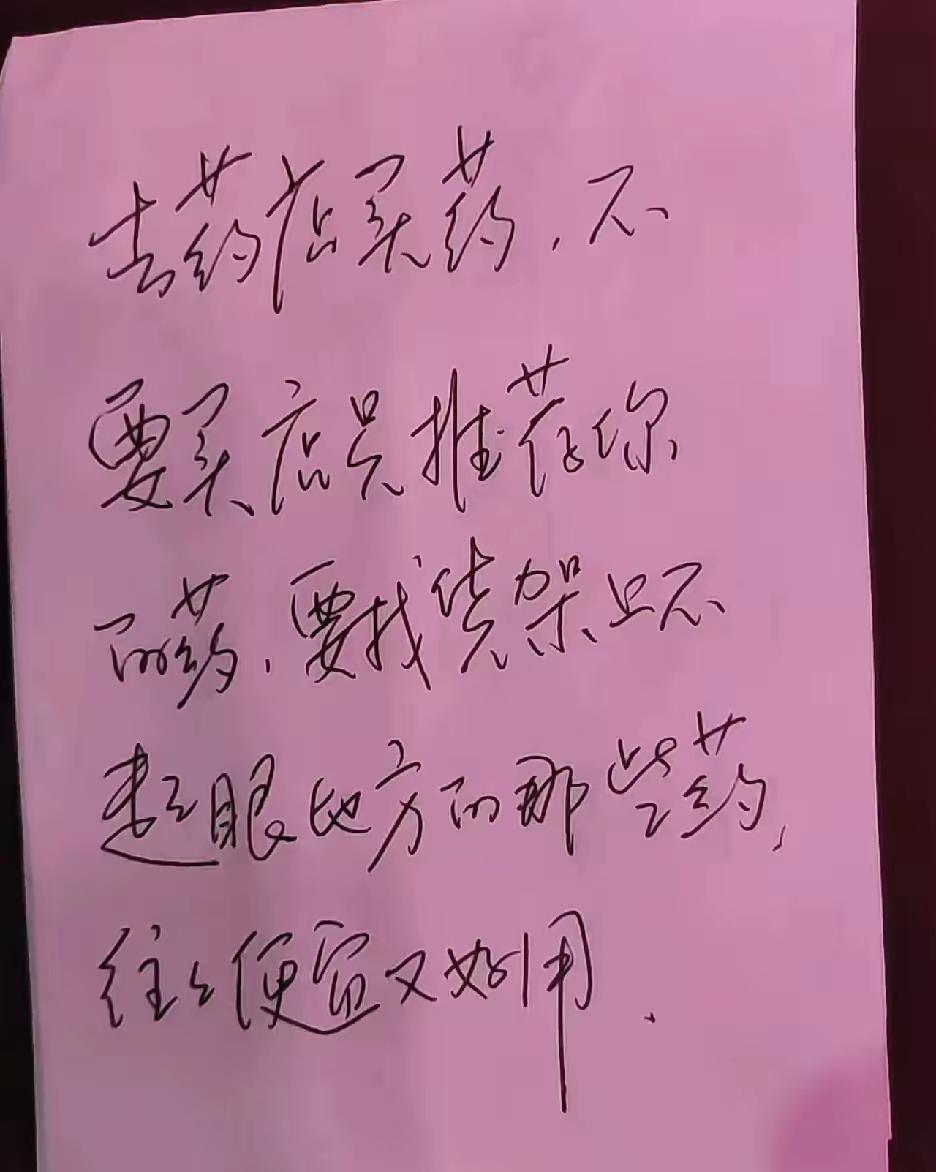 去药店买药,不
要买店员推荐你
的药,要找货架上不
起眼地方的那些药,
往往便宜又好用.